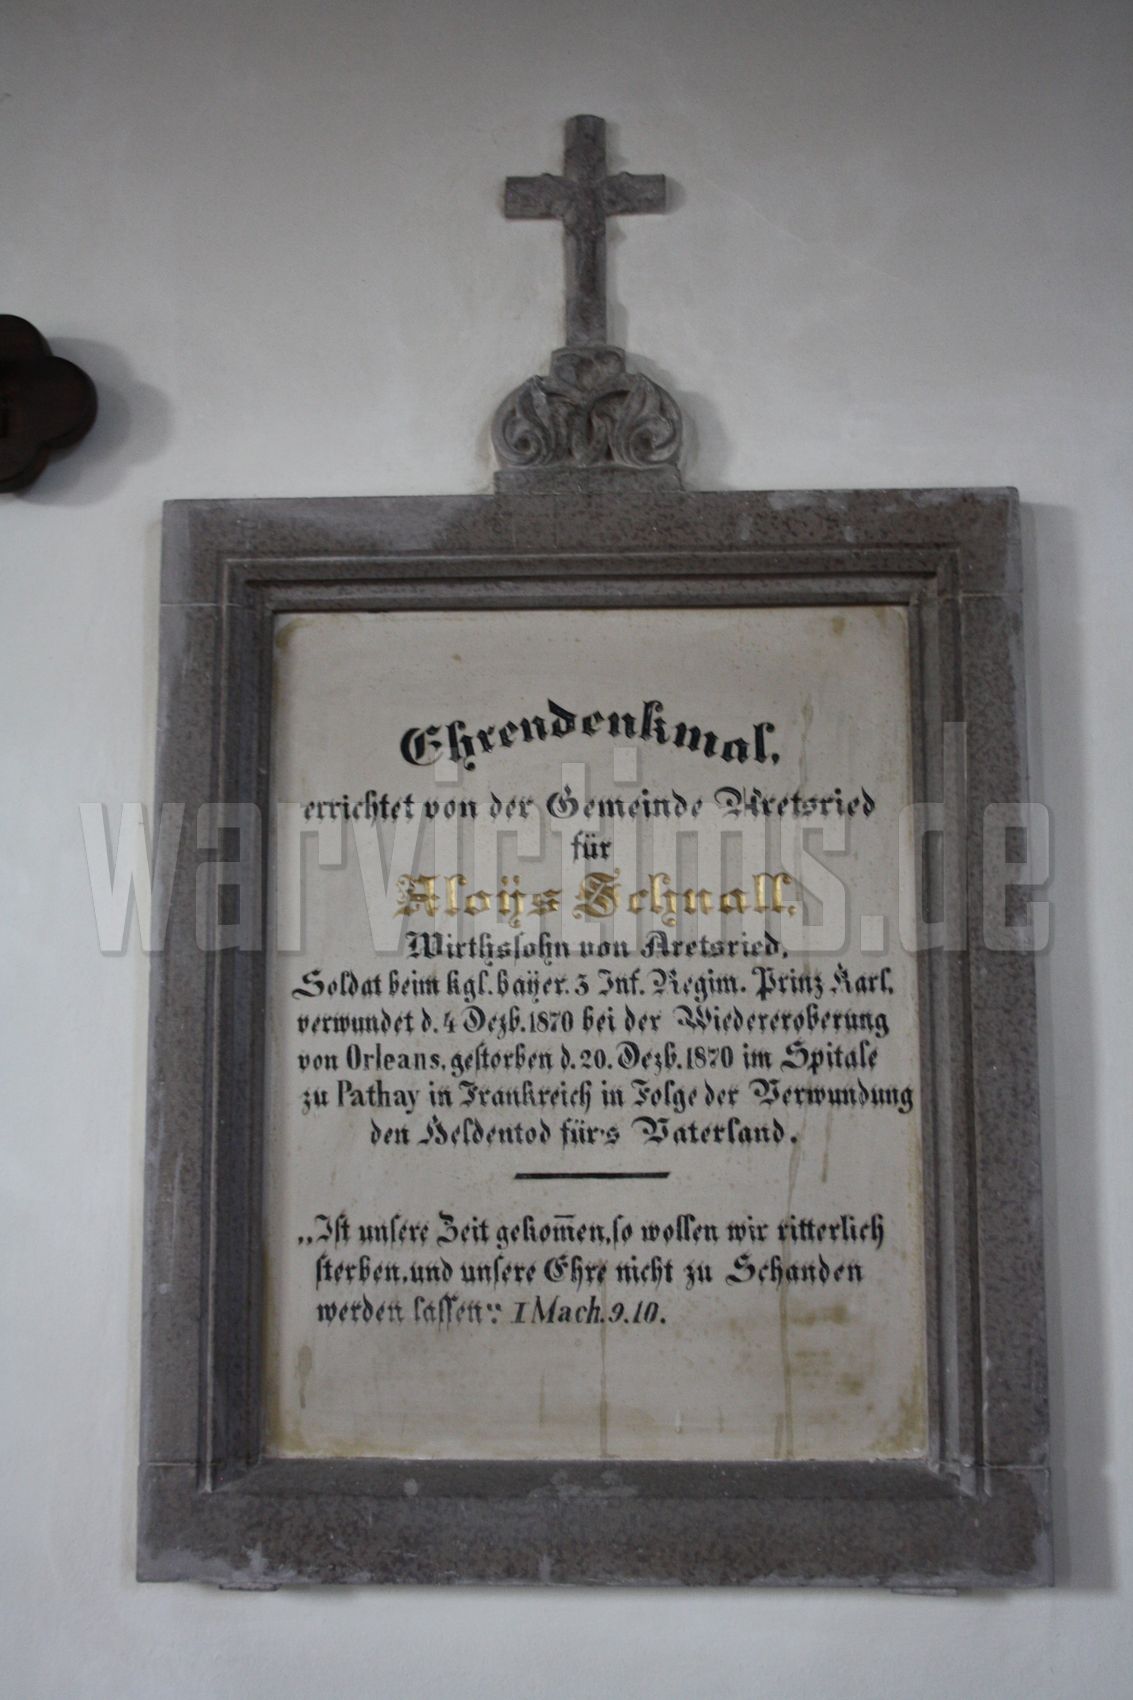 Ehrendenkmal,
errichtet von der Gemeinde Aretsried
für
Aloÿs Schnall,
Wirthssohn von Aretsried,
Soldat beim kgl. baÿer. 3 Inf. Regim. Prinz Karl,
verwundet d. 4 Dezb. 1870 bei der Wiedereroberung
von Orleans, gestorben d. 20. Dezb. 1870 im Spitale
zu Pathay in Frankreich in Folge der Verwundung
den Heldentod für's Vaterland.
„Ist unsere Zeit gekom̅en, so wollen wir ritterlich
sterben, und unsere Ehre nicht zu Schanden
werden lassen“: I Mach. 9.10.
warvictims.de